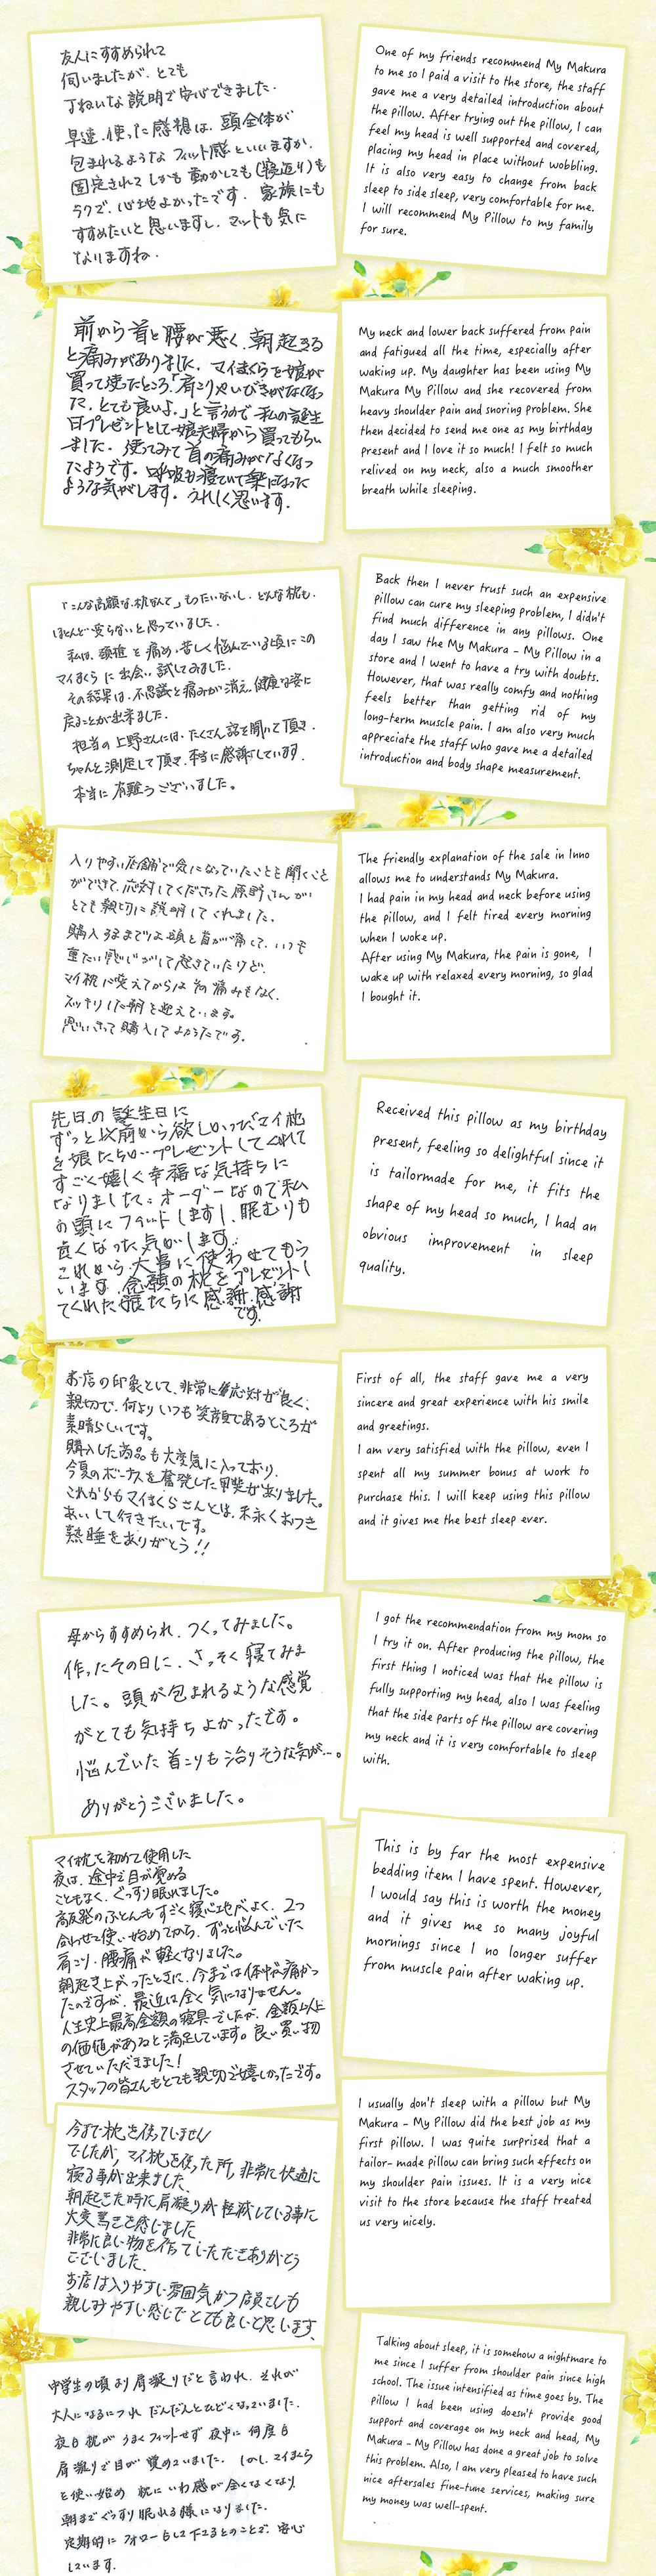 友人にすすめられて
伺いましたが、とても
丁ねいな説明で安心できました。
早速、使った感想は、頭全体が
包まれるようなフィット感といいますか、
固定されてしかも動かしても(寝返り)も
ラクで、心地よかったです。家族にも
すすめたいと思いますし、マットも気に
なりますね。
One of my friends recommend My Makura
to me so I paid a visit to the store, the staff
gave me a very detailed introduction about
the pillow. After trying out the pillow, I can
feel my head is well supported and covered,
placing my head in place without wobbling.
It is also very easy to change from back
sleep to side sleep, very comfortable for me.
I will recommend My Pillow to my family
for sure.
前から首と腰が悪く、朝起きる
と痛みがありました。マイまくらを娘が
買って使ったところ、「肩こりやいびきがなくなっ
た、とても良いよ。」と言うので私の誕生
日プレゼントとして娘夫婦から買ってもらい
ました。使ってみて首の痛みがなくなっ
たようです。呼吸も寝ていて楽になった
ような気がします。うれしく思います。
My neck and lower back suffered from pain
and fatigued all the time, especially after
waking up. My daughter has been using My
Makura My Pillow and she recovered from
heavy shoulder pain and snoring problem. She
then decided to send me one as my birthday
present and I love it so much! I felt so much
relived on my neck, also a much smoother
breath while sleeping.
「こんな高額な枕なんて」もったいないし、どんな枕も、
ほとんど変らないと思っていました。
私は、頚椎を痛め、苦しく悩んでいる頃にこの
マイまくらに出会い、試してみました。
その結果は、不思議と痛みが消え、健康な姿に
戻ることが出来ました。
担当の上野さんには、たくさん話を聞いて頂き、
ちゃんと測定して頂き、本当に感謝しています。
本当に有難うございました。
Back then I never trust such an expensive
pillow can cure my sleeping problem, I didn't
find much difference in any pillows. One
day I saw the My Makura - My Pillow in a
store and I went to have a try with doubts.
However, that was really comfy and nothing
feels better than getting rid of my
long-term muscle pain. I am also very much
appreciate the staff who gave me a detailed
introduction and body shape measurement.
入りやすい店舗で気になっていたことも聞くこと
ができて、応対してくださった原野さんが
とても親切に説明してくれました。
購入するまでは頭と首が痛くて、いつも
重たい感じがして起きていたけど、
マイ枕に変えてからはその痛みもなく、
スッキリした朝を迎えています。
思いきって購入してよかったです。
The friendly explanation of the sale in Inno
allows me to understands My Makura.
I had pain in my head and neck before using
the pillow, and I felt tired every morning
when I woke up.
After using My Makura, the pain is gone, I
wake up with relaxed every morning, so glad
I bought it.
先日の誕生日に
ずっと以前から欲しかったマイ枕
を娘たちがプレゼントしてくれて
すごく嬉しく幸福な気持ちに
なりました。オーダーなので私
の頭にフィットしますし、眠むりも
良くなった気がします。
これから大事に使わせてもら
います。念願の枕をプレゼントし
てくれた娘たちに感謝、感謝
です。
Received this pillow as my birthday
present, feeling so delightful since it
is tailormade for me, it fits the
shape of my head so much, I had an
obvious improvement in sleep
quality.
お店の印象として、非常に応対が良く、
親切で、何よりいつも笑顔であるところが
素晴らしいです。
購入した商品も大変気に入っており、
今夏のボーナスを奮発した甲斐がありました。
これからもマイまくらさんとは、末永くおつき
あいして行きたいです。
熟睡をありがとう!!
First of all, the staff gave me a very
sincere and great experience with his smile
and greetings.
I am very satisfied with the pillow, even I
spent all my summer bonus at work to
purchase this. I will keep using this pillow
and it gives me the best sleep ever.
母からすすめられ、つくってみました。
作ったその日に、さっそく寝てみま
した。頭が包まれるような感覚
がとても気持ちよかったです。
悩んでいた首こりも治りそうな気が…。
ありがとうございました。
I got the recommendation from my mom so
I try it on. After producing the pillow, the
first thing I noticed was that the pillow is
fully supporting my head, also I was feeling
that the side parts of the pillow are covering
my neck and it is very comfortable to sleep
with.
マイ枕を初めて使用した
夜は、途中で目が覚める
こともなく、ぐっすり眠れました。
高反発のふとんもすごく寝心地がよく、2つ
合わせて使い始めてから、ずっと悩んでいた
肩こり・腰痛が軽くなりました。
朝起き上がったときに、今までは体中が痛かっ
たのですが、最近は全く気になりません。
人生史上最高金額の寝具でしたが、金額以上
の価値があると満足しています。良い買い物
させていただきました!
スタッフの皆さんもとても親切で嬉しかったです。
This is by far the most expensive
bedding item I have spent. However,
I would say this is worth the money
and it gives me so many joyful
mornings since I no longer suffer
from muscle pain after waking up.
今まで枕を使っていません
でしたが、マイ枕を使った所、非常に快適に
寝る事が出来ました。
朝起きた時に肩凝りが軽減している事に
大変驚きを感じました
非常に良い物を作っていただきありがとう
ございました。
お店は入りやすい雰囲気かつ店員さんも
親しみやすい感じでとても良いと思います。
I usually don't sleep with a pillow but My
Makura - My Pillow did the best job as my
first pillow. I was quite surprised that a
tailor- made pillow can bring such effects on
my shoulder pain issues. It is a very nice
visit to the store because the staff treated
us very nicely.
中学生の頃より肩凝りだと言われ、それが
大人になるにつれ だんだんとひどくなっていました。
夜も枕が うまくフィットせず 夜中に何度も
肩凝りで目が覚めていました。しかし、マイまくら
を使い始め 枕に いわ感が全くなくなり
朝までぐっすり眠れる様になりました。
定期的に フォローもして下さるとのことで、安心
しています。
Talking about sleep, it is somehow a nightmare to
me since I suffer from shoulder pain since high
school. The issue intensified as time goes by. The
pillow I had been using doesn't provide good
support and coverage on my neck and head, My
Makura - My Pillow has done a great job to solve
this problem. Also, I am very pleased to have such
nice aftersales fine-tune services, making sure
my money was well-spent.